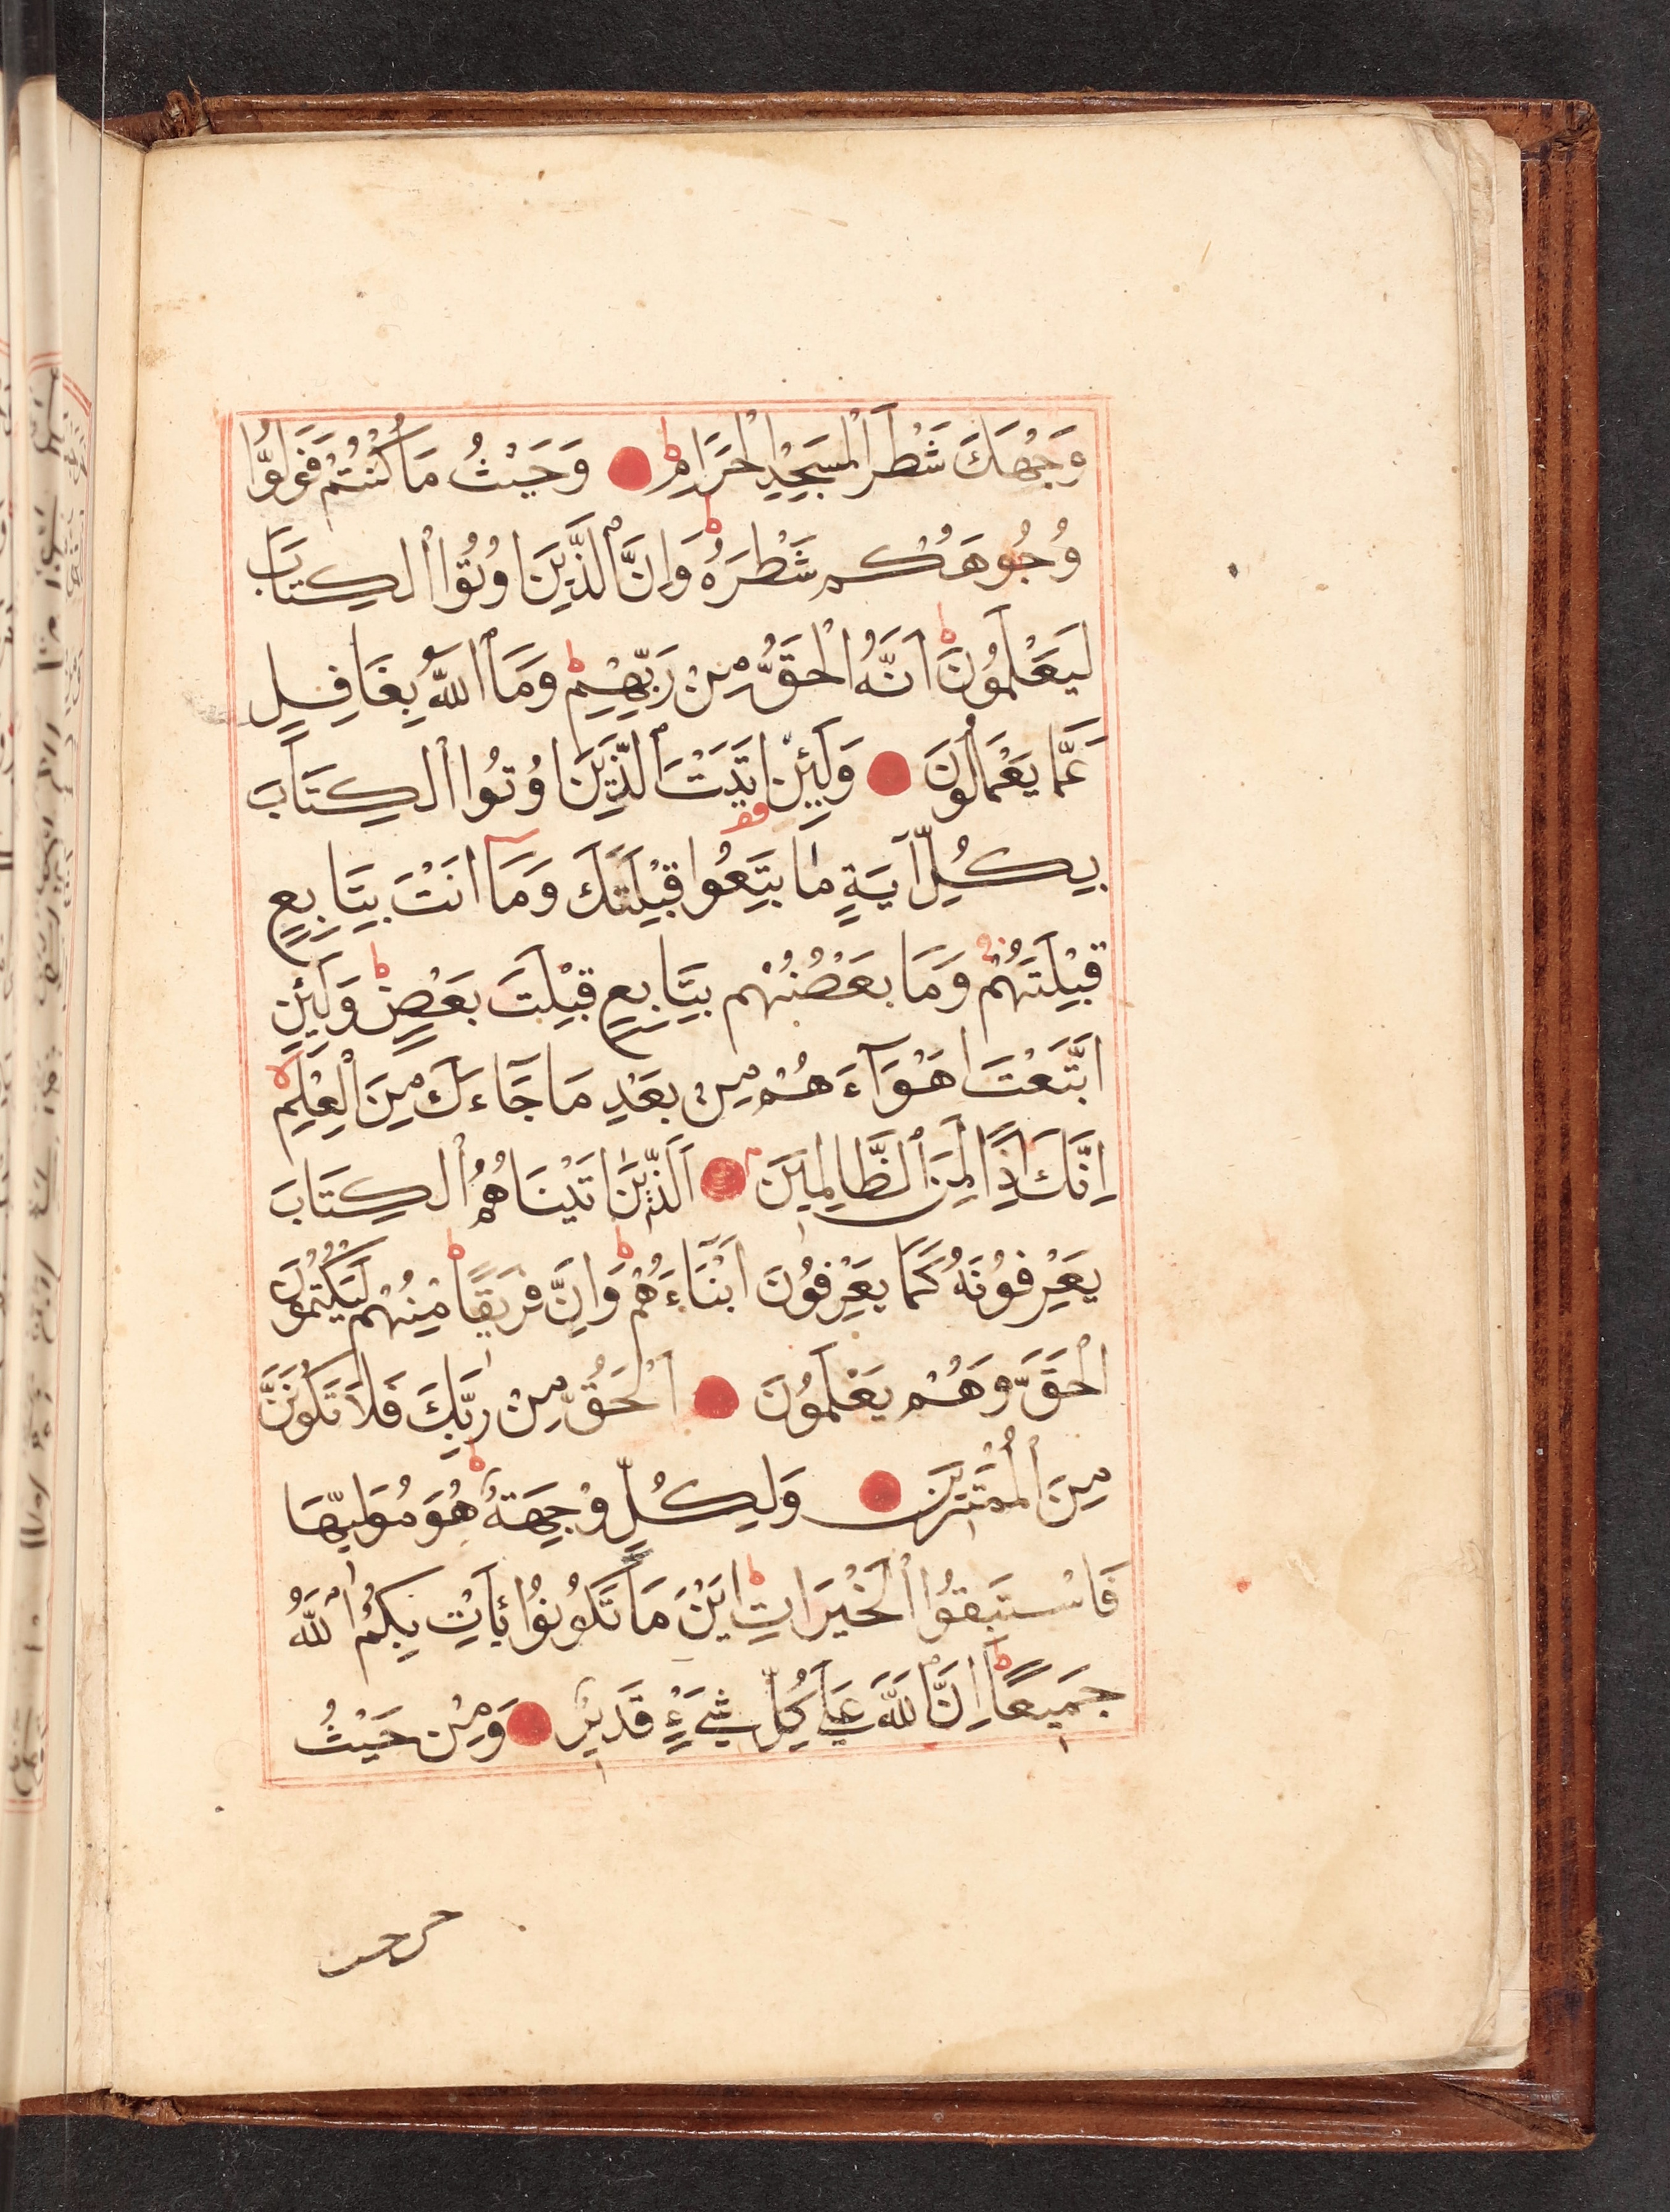 وَجْهَكَ شَطْرَ الْمَسْجِدِ الْحَرَامِ ط وَحَيْثُ مَا كُنْتُمْ فَوَلُّوا
وُجُوهَكُم شَطْرَهُ ط وَاِنَّ الَّذِينَ اوُتُوا الْكِتَابَ
لَيَعْلَمُونَ اَنَّهُ الْحَقُّ مِنْ رَبِّهِمْ ط وَمَا اللّٰهُ بِغَافِلٍ
عَمَّا يَعْمَلُونَ وَلَئِنْ اتَيْتَ الَّذِينَ اوُتُوا الْكِتَابَ
بِكُلِّ آيَةٍ مَا تَبِعُوا قِبْلَتَكَ وَمَا انْتَ بِتَابِعٍ
قِبْلَتَهُمْ وَمَا بَعْضُهُم بِتَابِعٍ قِبْلَتَ بَعْضٍ ط وَلَئِنِ
اتَّبَعْتَ اهْوَآءَهُمْ مِنْ بَعْدِ مَا جَآءَكَ مِنَ الْعِلْمِ
اِنَّكَ اِذًا لَمِنَ الظَّالِمِينَ م اَلَّذِينَ اتَيْنَاهُمُ الْكِتَابَ
يَعْرِفُونَهُ كَمَا يَعْرِفُونَ اَبْنَآءَهُمْ ط وَاِنَّ فَرِيقًا مِنْهُمْ لَيَكْتُمُونَ
الْحَقَّ وَهُمْ يَعْلَمُونَ اَلْحَقُّ مِنْ رَبِّكَ فَلَا تَكُونَنَّ
مِنَ الْمُمْتَرِينَ وَلِكُلٍّ وِجْهَةٌ هُوَ مُوَلِّيهَا
فَاسْتَبِقُوا الْخَيْرَاتِ ط اَيْنَ مَا تَكُونُوا يَأْتِ بِكُمُ اللّٰهُ
جَمِيعًا ط اِنَّ اللّٰهَ عَلَى كُلِّ شَيْءٍ قَدِيرٌ وَمِنْ حَيْثُ